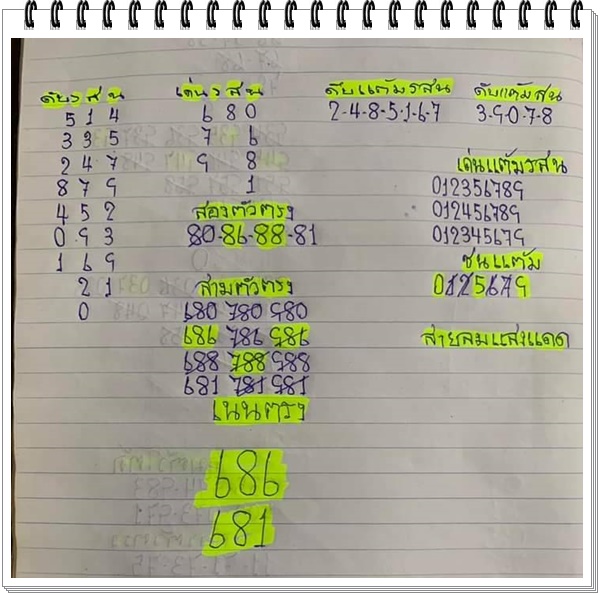 ดับ ร ส น
5 1 4
3 3 5
2 4 7
8 7 9
4 5 2
0 9 3
1 6 9
2 1
0
เด่น ร ส น
6 8 0
7 6
9 8
1
สองตัวตรง
80-86-88-81
สามตัวตรง
680 780 980
686 786 986
688 788 988
681 781 981
เนนตรง
686
681
ดับแต้มรสน
2-4-8-5-1-6-7
ดับแต้มสน
3-9-0-7-8
เด่นแต้มรสน
012356789
012456789
012345679
ชนแต้ม
0125679
สายลมแสงแดด